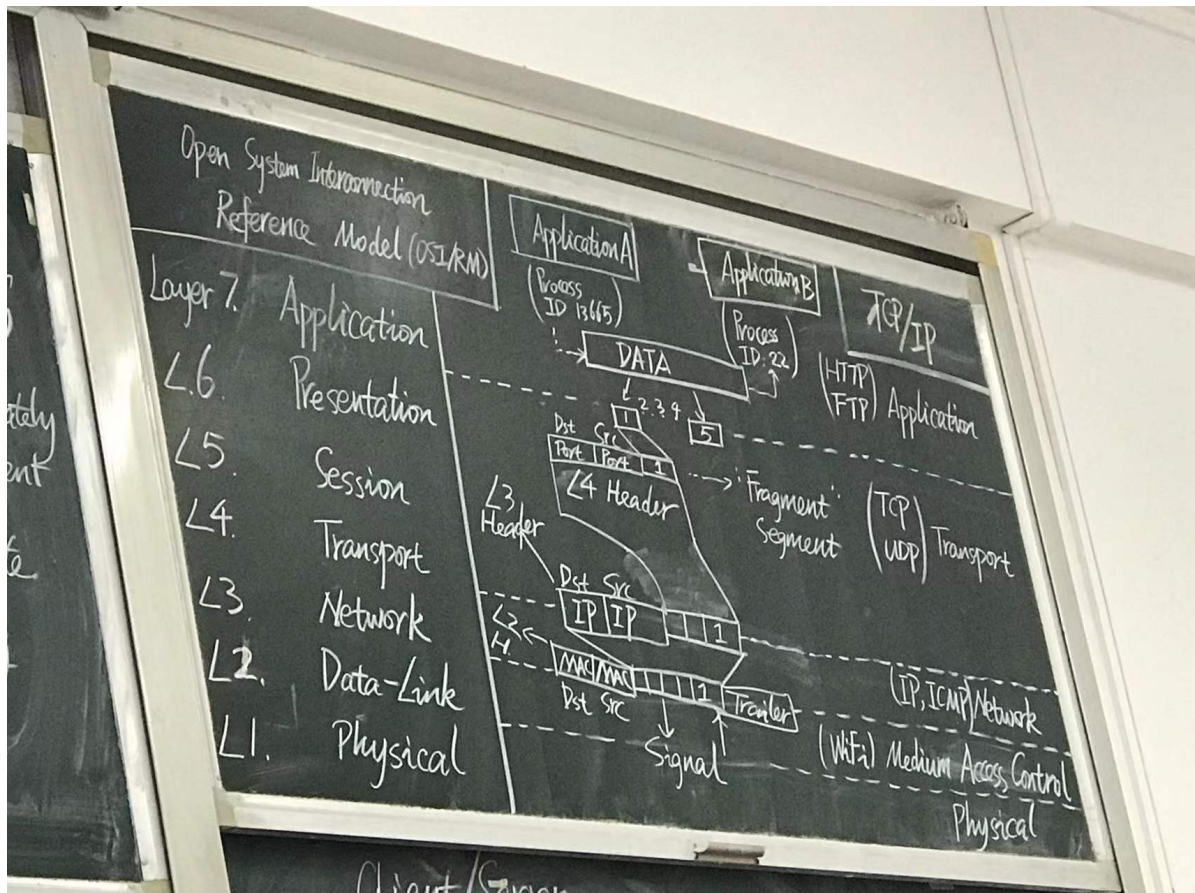 Open System Interconnection
Reference Model (OSI/RM)
Layer 7. Application
L.6 Presentation
L5. Session
L4. Transport
L3. Network
L2. Data-Link
L1. Physical
Application A
(Process
ID 13665)
Application B
(Process
ID: 22)
DATA
1 2 3 4 5
Dst Src
Port Port 1
L4 Header
"Fragment"
Segment
L3
Header
Dst Src
IP IP 1
L2
H
MAC MAC 1 Trailer
Dst Src
Signal
TCP/IP
(HTTP
FTP) Application
(TCP
UDP) Transport
(IP, ICMP) Network
(WiFi) Medium Access Control
Physical
ately
ent
te
Client/Server